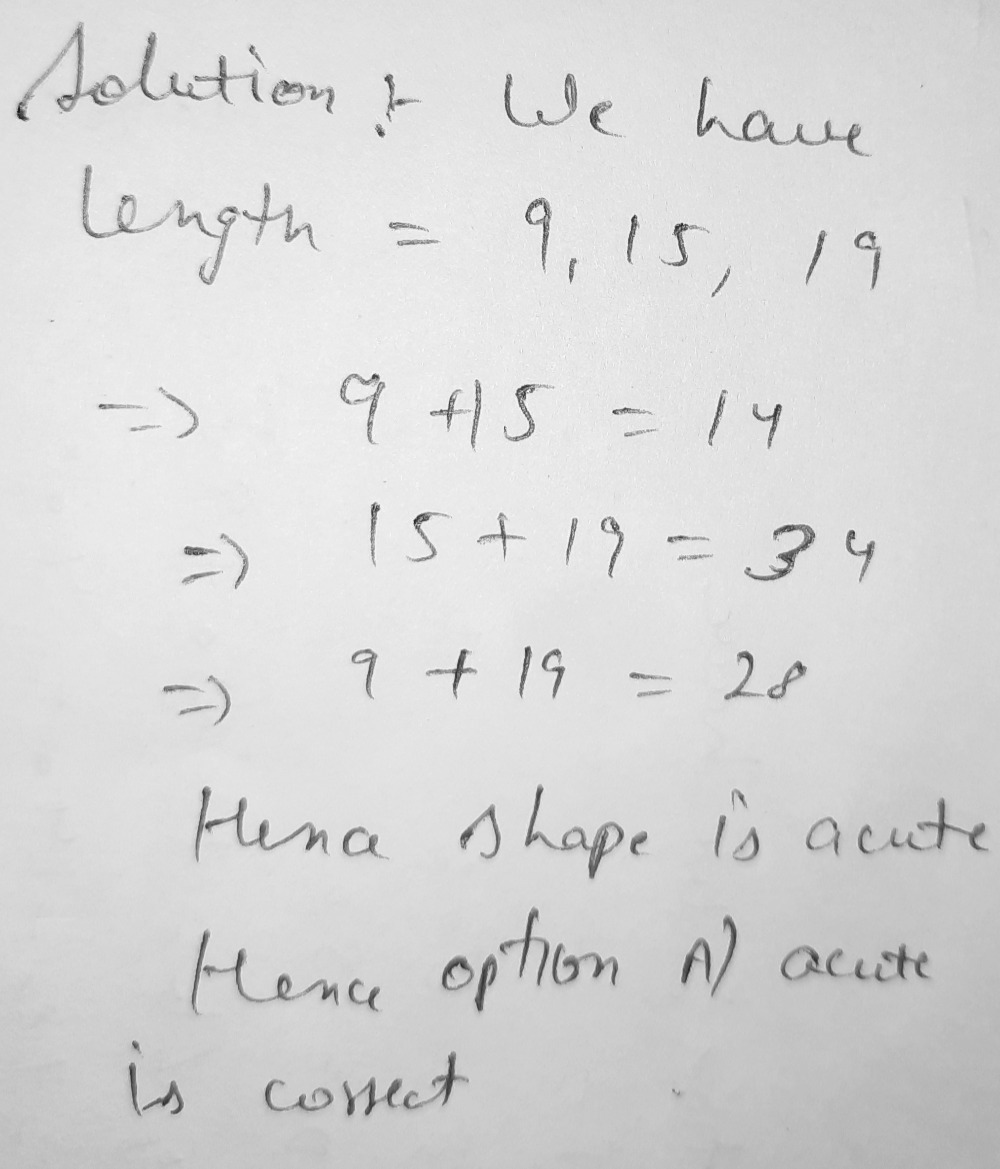 Solution :- We have
length = 9, 15, 19
=> 9 + 15 = 14
=> 15 + 19 = 34
=> 9 + 19 = 28
Hence shape is acute
Hence option A) acute
is correct